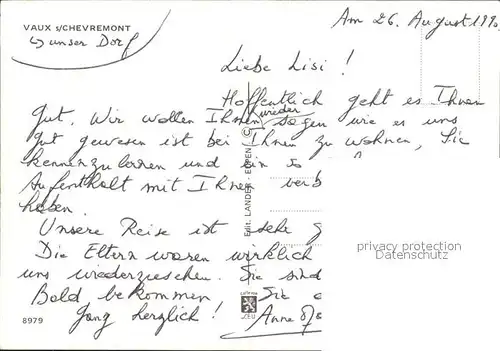 VAUX s/CHEVREMONT
↳ unser Dorf
Am 26. August 1990
Liebe Lisi!
Hoffentlich geht es Ihnen
gut. Wir wollen Ihnen wieder sagen wie es uns
gut gewesen ist bei Ihnen zu wohnen, Sie
kennenzulernen und ein so
Aufenthalt mit Ihnen verb
haben.
Unsere Reise ist sehr g
Die Eltern waren wirklich
uns wiederzusehen. Sie sind
Bald bekommen Sie
Ganz herzlich! Anne
8979
Edit. LANDER - EUPEN
privacy protection
Akpool.de